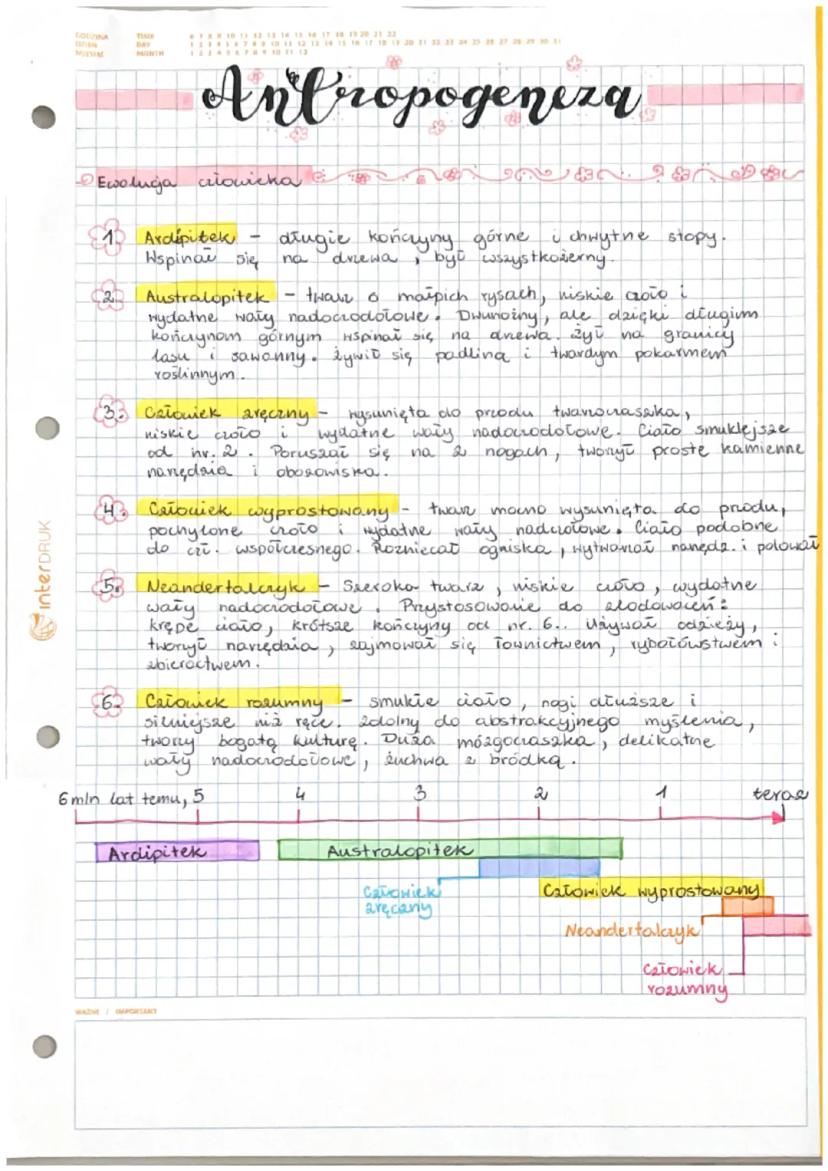 GODZINA TIME 6 7 8 9 10 11 12 13 14 15 16 17 18 19 20 21 22
DZIEŃ DAY 1 2 3 4 5 6 7 8 9 10 11 12 13 14 15 16 17 18 19 20 21 22 23 24 25 26 27 28 29 30 31
MIESIĄC MONTH 1 2 3 4 5 6 7 8 9 10 11 12
Antropogeneza
Ewolucja człowieka
1. Ardipitek - długie kończyny górne i chwytne stopy.
Wspinał się na drzewa, był wszystkożerny.
2. Australopitek - twarz o małpich rysach, niskie czoło i
wydatne wały nadoczodołowe. Dwunożny, ale dzięki długim
kończynom górnym wspinał się na drzewa. Żył na granicy
lasu i sawanny. Żywił się padliną i twardym pokarmem
roślinnym.
3. Człowiek zręczny - wysunięta do przodu twarzoczaszka,
niskie czoło i wydatne wały nadoczodołowe. Ciało smuklejsze
od nr. 2. Poruszał się na 2 nogach, tworzył proste kamienne
narzędzia i obozowiska.
4. Człowiek wyprostowany - twarz mocno wysunięta do przodu,
pochylone czoło i wydatne wały nadczołowe. Ciało podobne
do czł. współczesnego. Rozniecał ogniska, wytwarzał narzędz. i polował
5. Neandertalczyk - Szeroka twarz, niskie czoło, wydatne
wały nadoczodołowe. Przystosowanie do zlodowaceń:
krępe ciało, krótsze kończyny od nr. 6.. Używał odzieży,
tworzył narzędzia, zajmował się łownictwem, rybołówstwem i
zbieractwem.
6. Człowiek rozumny - smukłe ciało, nogi dłuższe i
silniejsze niż ręce. Zdolny do abstrakcyjnego myślenia,
tworzy bogatą kulturę. Duża mózgoczaszka, delikatne
wały nadoczodołowe, żuchwa z bródką.
6 mln lat temu, 5 4 3 2 1 teraz
Ardipitek Australopitek
Człowiek zręczny
Człowiek wyprostowany
Neandertalczyk
Człowiek rozumny
WAŻNE / IMPORTANT
interDRUK